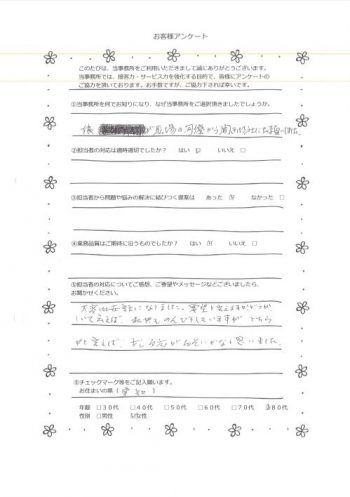 お客様アンケート
このたびは、当事務所をご利用いただきまして誠にありがとうございます。
当事務所では、接客力・サービス力を強化する目的で、皆様にアンケートの
ご協力を頂いております。お手数ですが、ご協力下されば幸いです。
①当事務所を何でお知りになり、なぜ当事務所をご選択頂きましたでしょうか。
が 現場の同僚から
②担当者の対応は適時適切でしたか? はい ☑ いいえ □
③担当者から問題や悩みの解決に結びつく提案は あった ☑ なかった □
④業務品質はご期待に沿うものでしたか? はい ☑ いいえ □
⑤担当者の対応についてご感想、ご要望やメッセージなどございましたら、
お聞かせください。
大変お世話になりました。
のんびりしていますが どちら
かと言えば、 かなと思いました。
⑥チェックマーク等をご記入願います。
お住まいの県(愛知)
年齢 □30代 □40代 □50代 □60代 □70代 ☑80代
性別 □男性 ☑女性